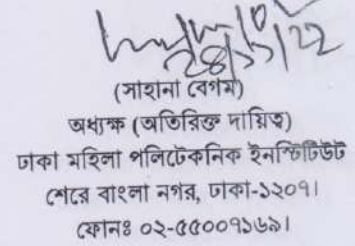 (সাহানা বেগম)
অধ্যক্ষ (অতিরিক্ত দায়িত্ব)
ঢাকা মহিলা পলিটেকনিক ইনস্টিটিউট
শেরে বাংলা নগর, ঢাকা-১২০৭।
ফোনঃ ০২-৫৫০০৭১৬৯।